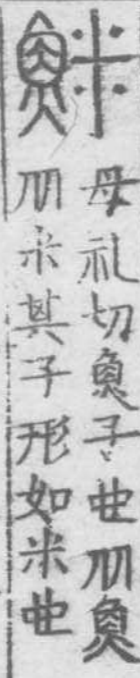 䱊
母礼切魚子也从魚
从米其子形如米也